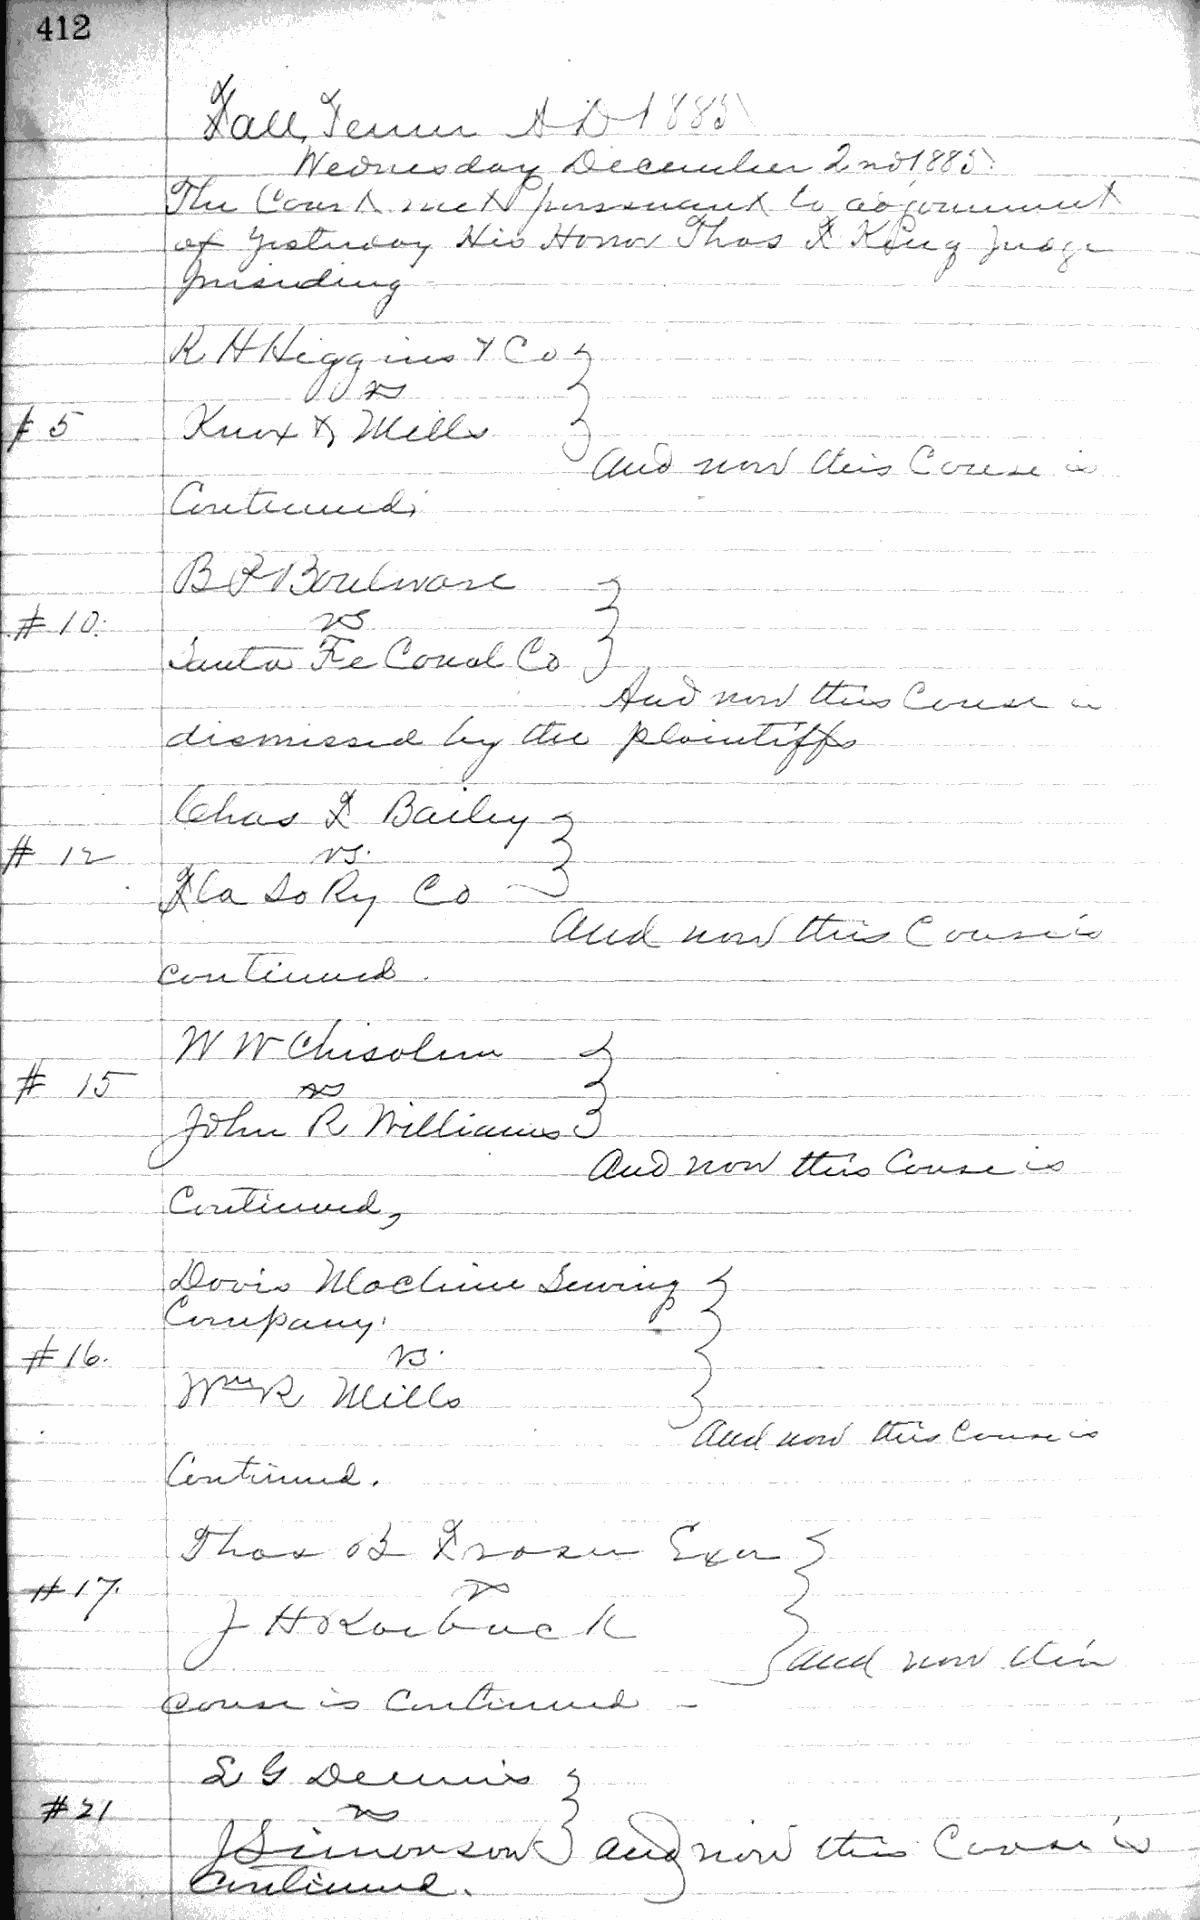 412
Fall Term A D 1885
Wednesday December 2nd 1885.
The Court met pursuant to adjournment
of yesterday His Honor Thos F King Judge
presiding
R H Higgins & Co
vs
# 5 Knox & Mills
And now this Cause is
Continued;
B R Boulware
# 10. vs
Santa Fe Canal Co
And now this Cause is
dismissed by the plaintiffs
Chas F Bailey
# 12 vs.
Fla So Ry Co
And now this Cause is
continued.
W W Chisolm
# 15 vs
John R Williams
And now this Cause is
Continued,
Davis Machine Sewing
Company.
# 16. vs.
Wm R Mills
And now this Cause is
Continued.
Thos B Frazer Exer
# 17. vs
J H Roebuck
And now this
cause is Continued -
L G Dennis
# 21 vs
J Simonson And now this Cause is
Continued.